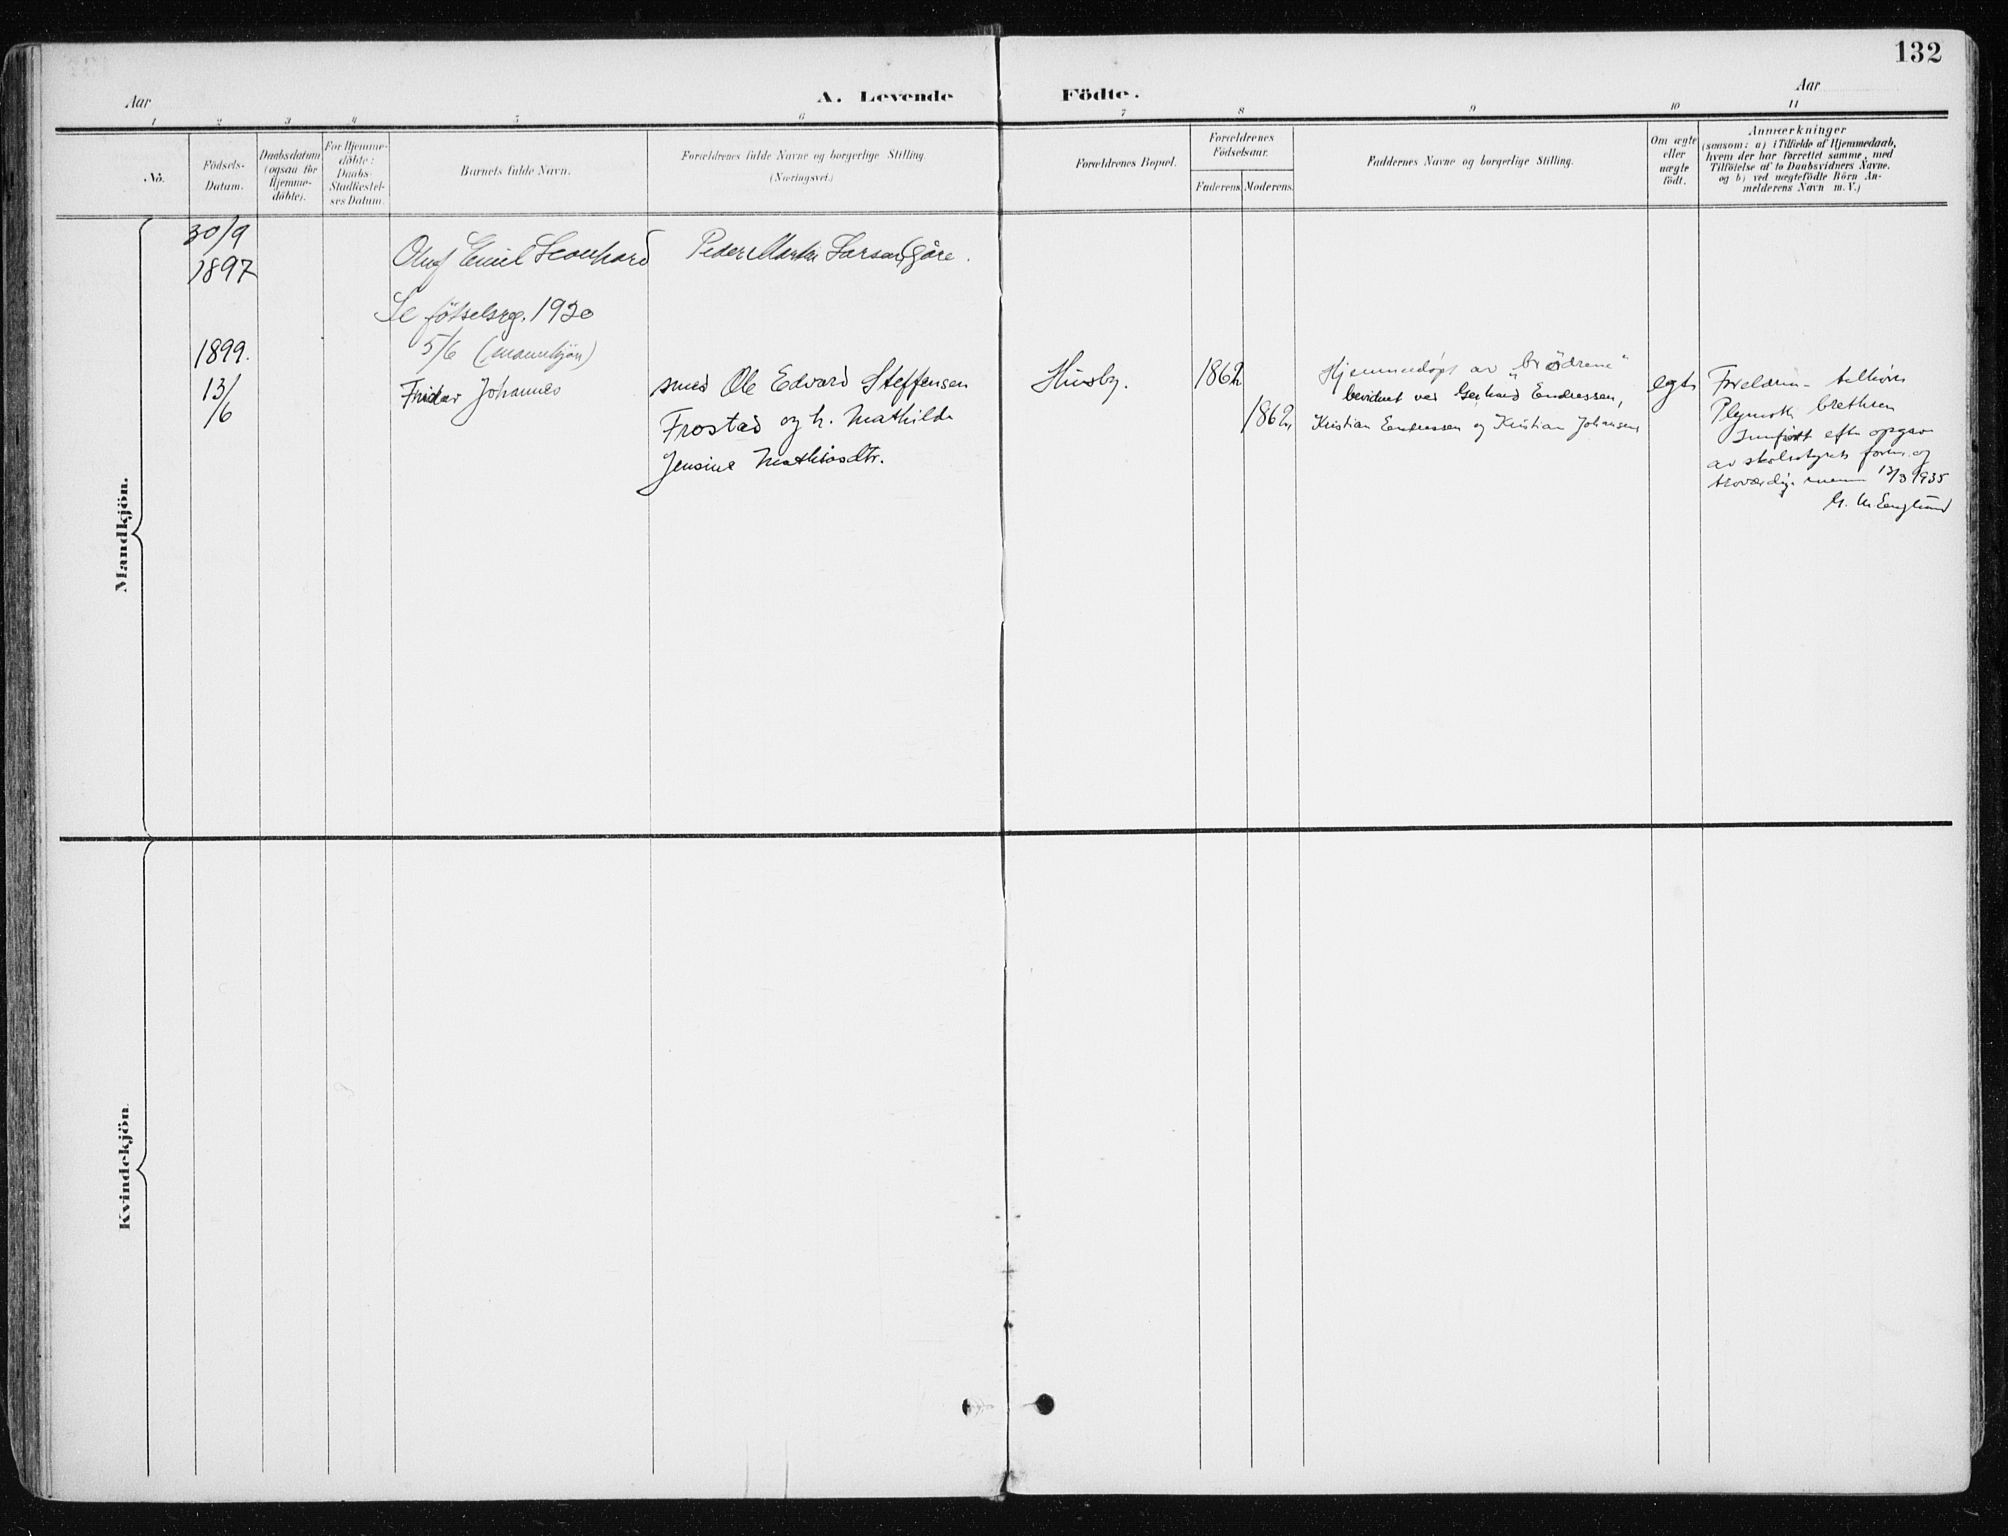 132
Aar
A. Levende Födte.
Aar
1 2 3 4 5 6 7 8 9 10 11
No.
Födsels-
Datum.
Daabsdatum
(ogsaa for
Hjemme-
döbte).
For Hjemme-
döbte:
Daabs-
Stadfæstel-
ses Datum.
Barnets fulde Navn.
Forældrenes fulde Navne og borgerlige Stilling.
(Næringsvei.)
Forældrenes Bopæl.
Forældrenes
Födselsaar.
Faderens. Moderens.
Faddernes Navne og borgerlige Stilling.
Om ægte
eller
uægte
födt.
Anmærkninger
(saasom: a) i Tilfælde af Hjemmedaab,
hvem der har forrettet samme, med
Tilföielse af to Daabsvidners Navne.
og b) ved uægtefödte Börn An-
melderens Navn m. V.)
Mandkjön.
30/9
1897
Oluf Emil Leonhard
Peder Martin Larsen
Se fötselsreg. 1920
5/6 (mannkjön)
1899.
13/
/6
Fridar Johannes
smed Ole Edvard Steffensen
Frostad og h. Mathilde
Jensine Mathiasdtr.
Husby.
1862
1862
Hjemmedøpt av "brødrene"
bevidnet ved Gerhard Endressen,
Kristian Endressen og Kristian Johansen
egte
Foreldrene tilhörer
Plymouth brethren
Innført efter opgave
av skolestyrets form. og
troværdige menn 13/3 1935
Kvindekjön.